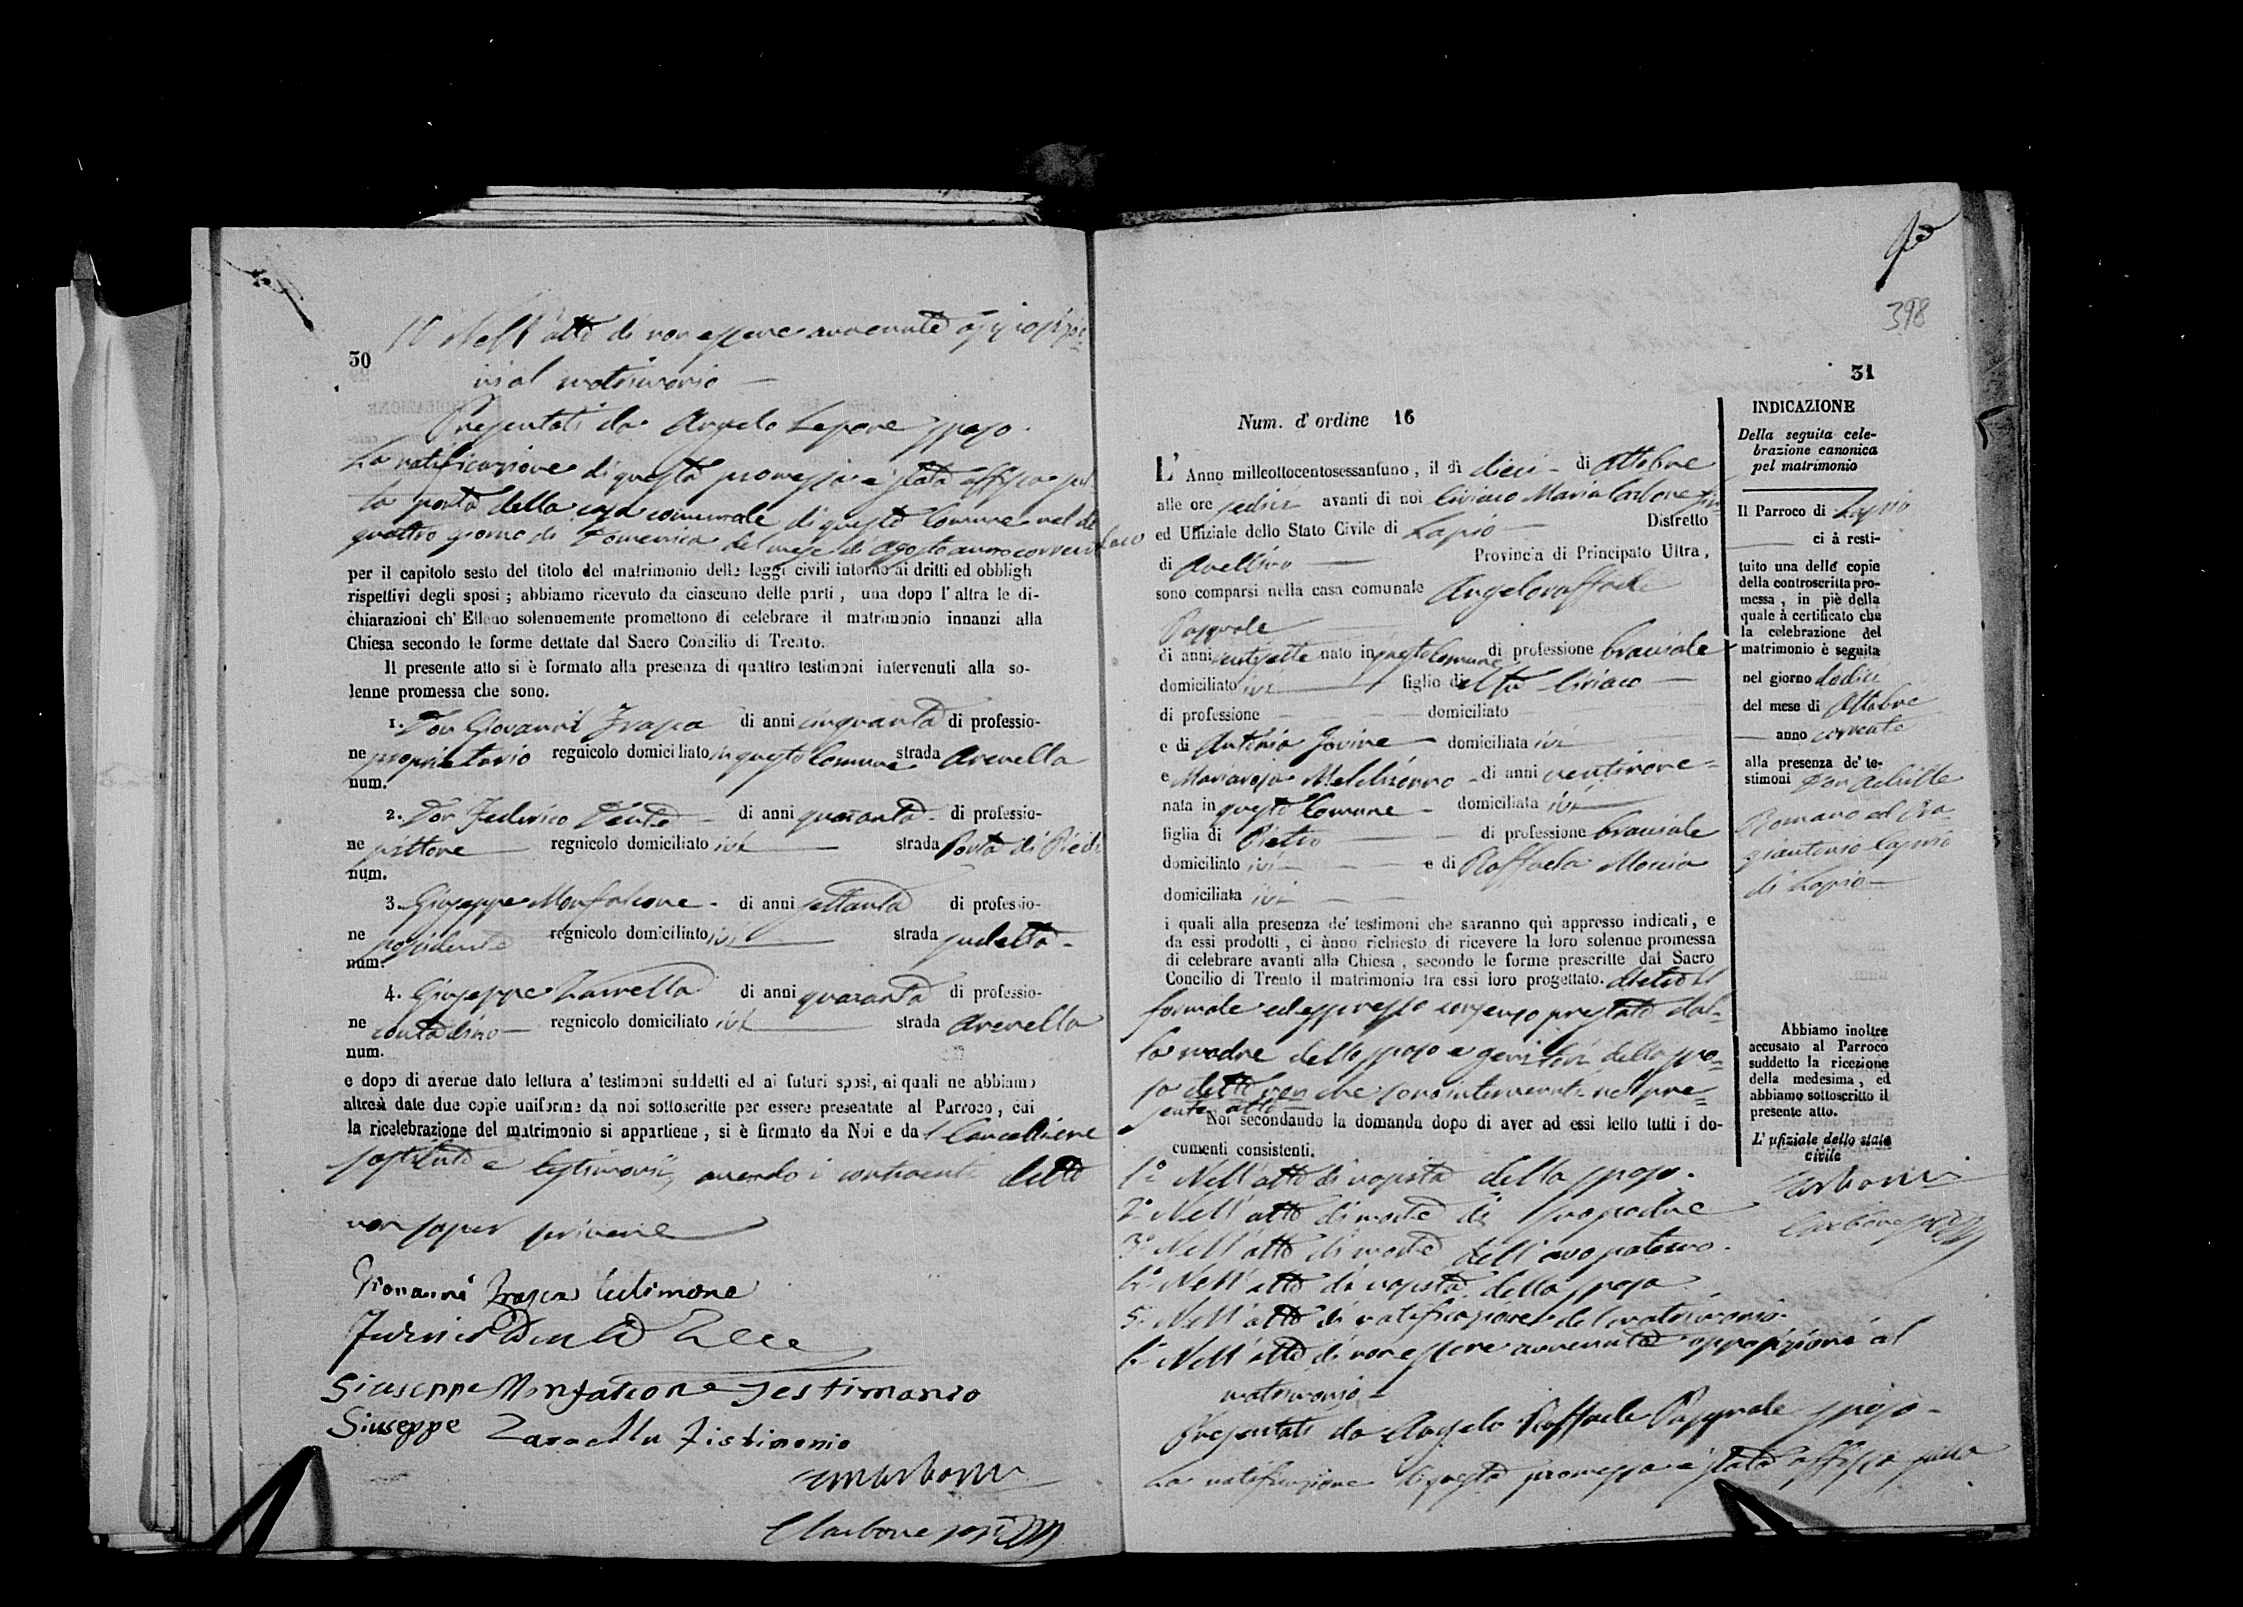 30
10 Nell'atto di non essere avvenute opposizio=
ni al matrimonio —
Presentati da Angelo Lepore sposo.
La notificazione di questa promessa è stata affissa sul-
la porta della casa comunale di questo Comune nel dì
quattro giorno di Domenica del mese di Agosto anno corrente
per il capitolo sesto del titolo del matrimonio delle leggi civili intorno ai dritti ed obbligh
rispettivi degli sposi ; abbiamo ricevuto da ciascuno delle parti , una dopo l'altra le di-
chiarazioni ch'Elleno solennemente promettono di celebrare il matrimonio innanzi alla
Chiesa secondo le forme dettate dal Sacro Concilio di Trento.
Il presente atto si è formato alla presenza di quattro testimoni intervenuti alla so-
lenne promessa che sono.
1. Don Giovanni Frasca di anni cinquanta di professio-
ne proprietario regnicolo domiciliato in questo Comune strada Arenella
num.
2. Don Federico Dente di anni quaranta di professio-
ne pittore regnicolo domiciliato ivi strada Porta di Piedi
num.
3. Giuseppe Monfalcone di anni settanta di professio-
ne possidente regnicolo domiciliato ivi strada
num.
4. Giuseppe Zarrella di anni quaranta di professio-
ne contadino regnicolo domiciliato ivi strada Arenella
num.
e dopo di averne dato lettura a' testimoni suddetti ed ai futuri sposi, ai quali ne abbiamo
altresì date due copie uniforme da noi sottoscritte per essere presentate al Parroco, cui
la ricelebrazione del matrimonio si appartiene , si è firmato da Noi e dal Cancelliere
sostituto e testimonii, avendo i contraenti detto
non saper scrivere
Giovanni Frasca testimone
Federico Dente
Giuseppe Monfalcone Testimonio
Giuseppe Zarrella Testimonio
Carbone
398
31
Num. d'ordine 16
L'Anno milleottocentosessantuno , il dì dieci di Ottobre
alle ore sedici avanti di noi Ciriaco Maria Carbone
ed Uffiziale dello Stato Civile di Lapio Distretto
di Avellino Provincia di Principato Ultra ,
sono comparsi nella casa comunale Angeloraffaele
Pasquale
di anni ventisette nato in questo Comune di professione bracciale
domiciliato ivi figlio del fu Ciriaco
di professione — domiciliato
e di Antonia Jovine domiciliata ivi
e Mariarosa Melchionno di anni ventinove
nata in questo Comune domiciliata ivi
figlia di Pietro di professione bracciale
domiciliato ivi e di Raffaela Moccia
domiciliata ivi
i quali alla presenza de' testimoni che saranno quì appresso indicati , e
da essi prodotti , ci ànno richiesto di ricevere la loro solenne promessa
di celebrare avanti alla Chiesa , secondo le forme prescritte dal Sacro
Concilio di Trento il matrimonio tra essi loro progettato. dietro il
formale ed espresso consenso prestato dal-
la madre dello sposo e genitori della spo=
sa che sono intervenuti nel pre=
sente atto
Noi secondando la domanda dopo di aver ad essi letto tutti i do-
cumenti consistenti.
1º Nell'atto di nascita dello sposo.
2º Nell'atto di morte di suo padre
3º Nell'atto di morte dell'avo paterno.
4º Nell'atto di nascita della sposa.
5º Nell'atto di notificazione del matrimonio.
6º Nell'atto di non essere avvenute opposizioni al
matrimonio
Presentati da Angelo Raffaele Pasquale sposo
La notificazione di questa promessa è stata affissa sulla
INDICAZIONE
Della seguita cele-
brazione canonica
pel matrimonio
Il Parroco di Lapio
ci à resti-
tuito una delle copie
della controscritta pro-
messa , in piè della
quale à certificato che
la celebrazione del
matrimonio è seguita
nel giorno dodici
del mese di Ottobre
anno corrente
alla presenza de' te-
stimoni Don Achille
Romano ed Bia-
giantonio Caprio
di Lapio
Abbiamo inoltre
accusato al Parroco
suddetto la ricezione
della medesima , ed
abbiamo sottoscritto il
presente atto.
L'ufiziale dello stato
civile
Carbone